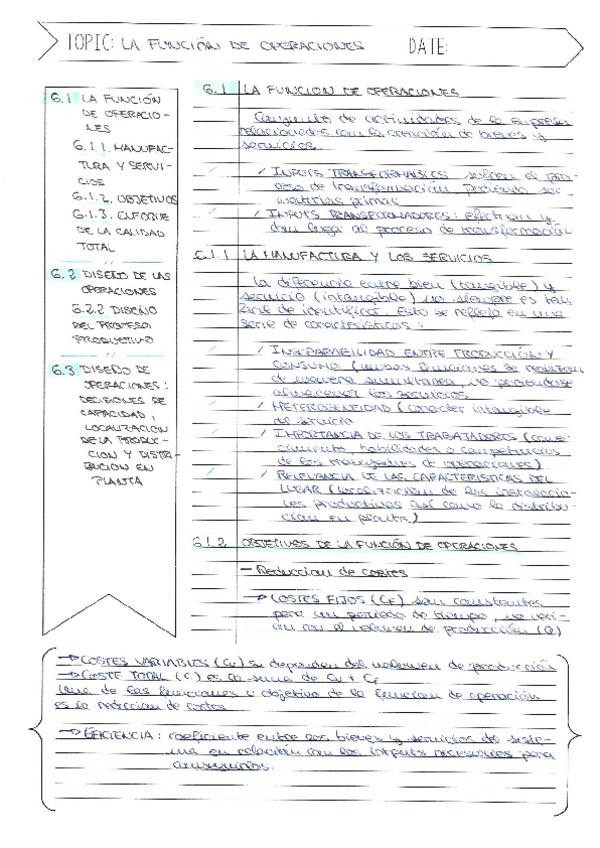 TOPIC: LA FUNCIÓN DE OPERACIONES DATE:
6.1 LA FUNCIÓN
DE OPERACIO-
NES
6.1.1. MANUFAC-
TURA Y SERVI-
CIOS
6.1.2. OBJETIVOS
6.1.3. ENFOQUE
DE LA CALIDAD
TOTAL
6.2 DISEÑO DE LAS
OPERACIONES
6.2.2 DISEÑO
DEL PROCESO
PRODUCTIVO
6.3 DISEÑO DE
OPERACIONES:
DECISIONES DE
CAPACIDAD,
LOCALIZACIÓN
DE LA PRODUC-
CION Y DISTRI-
BUCION EN
PLANTA
6.1 LA FUNCION DE OPERACIONES
Conjunto de actividades de la empresa
relacionadas con la creación de bienes y
servicios.
INPUTS TRANSFORMABLES: sufren el pro-
ceso de transformación, pudiendo ser
materias primas
INPUTS TRANSFORMADORES: efectuan y
dan lugar al proceso de transformación
6.1.1 LA MANUFACTURA Y LOS SERVICIOS
La diferencia entre bien (tangible) y
servicio (intangible) no siempre es tan
facil de identificar. Esto se refleja en una
serie de caracteristicas:
INSEPARABILIDAD ENTRE PRODUCCIÓN Y
CONSUMO (ambas funciones se realizan
de manera simultanea, no pudiendose
almacenar los servicios
HETEROGENEIDAD (caracter intangible
del servicio
IMPORTANCIA DE LOS TRABAJADORES (cono-
cimiento, habilidades o competencias
de los trabajadores de operaciones)
RELEVANCIA DE LAS CARACTERISTICAS DEL
LUGAR (localizacion de las instalacio-
nes productivas asi como la distribu-
cion en planta)
6.1.2 OBJETIVOS DE LA FUNCIÓN DE OPERACIONES
- Reduccion de costes
→ COSTES FIJOS (CF) son constantes
para un periodo de tiempo, no vari-
an con el volumen de producción (Q)
→ COSTES VARIABLES (Cv) si dependen del volumen de producción
→ COSTE TOTAL (C) es la suma de Cv + CF
Una de las funciones u objetivo de la funcion de operación
es la reduccion de costes
→ EFICIENCIA: coeficiente entre los bienes y servicios del siste-
ma en relación con los inputs necesarios para